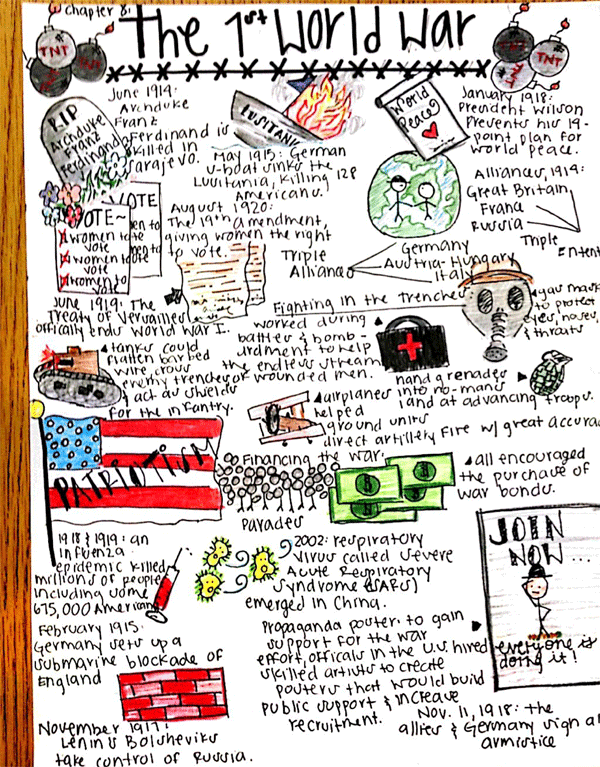 chapter 8:
The 1st World War
TNT
TNT
RIP
Archduke
Franz
Ferdinand
June 1914:
Archduke
Franz
Ferdinand is
killed in
Sarajevo.
LUSITANIA
May 1915: German
U-boat sinks the
Lusitania, killing 128
Americans.
World
Peace
January 1918:
President Wilson
Presents his 14-
point plan for
world peace.
VOTE
VOTE~
women to
vote
women to
vote
women to
vote
August 1920:
The 19th Amendment,
giving women the right
to vote.
Alliances, 1914:
Great Britain,
France
Russia
Triple
Entent
Triple
Alliance
Germany
Austria-Hungary
Italy
June 1919: The
Treaty of Versailles
offically ends World War I.
Fighting in the trenches
gas mask
to protect
eyes, noses,
& throats
worked during
battles & bomb-
ardment to help
the endless stream
of wounded men.
tanks could
flatten barbed
wire, cross
enemy trenches
& act as shields
for the infantry.
hand grenades
into no-mans
land at advancing troops.
airplanes
helped
ground units
direct artillery fire w/ great accurac
PATRIOTISM
Financing the war:
Parades
all encouraged
the purchase of
war bonds.
1918 & 1919: an
influenza
epidemic killed
millions of people
including some
675,000 American
2002: respiratory
virus called severe
Acute Respiratory
Syndrome (SARS)
emerged in China.
JOIN
NOW...
everyone is
doing it!
February 1915:
Germany sets up a
submarine blockade of
England
Propaganda poster: to gain
support for the war
effort, officals in the U.S. hired
skilled artists to create
posters that would build
public support & increase
recruitment.
November 1917:
Lenin's Bolsheviks
take control of Russia.
Nov. 11, 1918: the
allies & Germany sign a
armistice